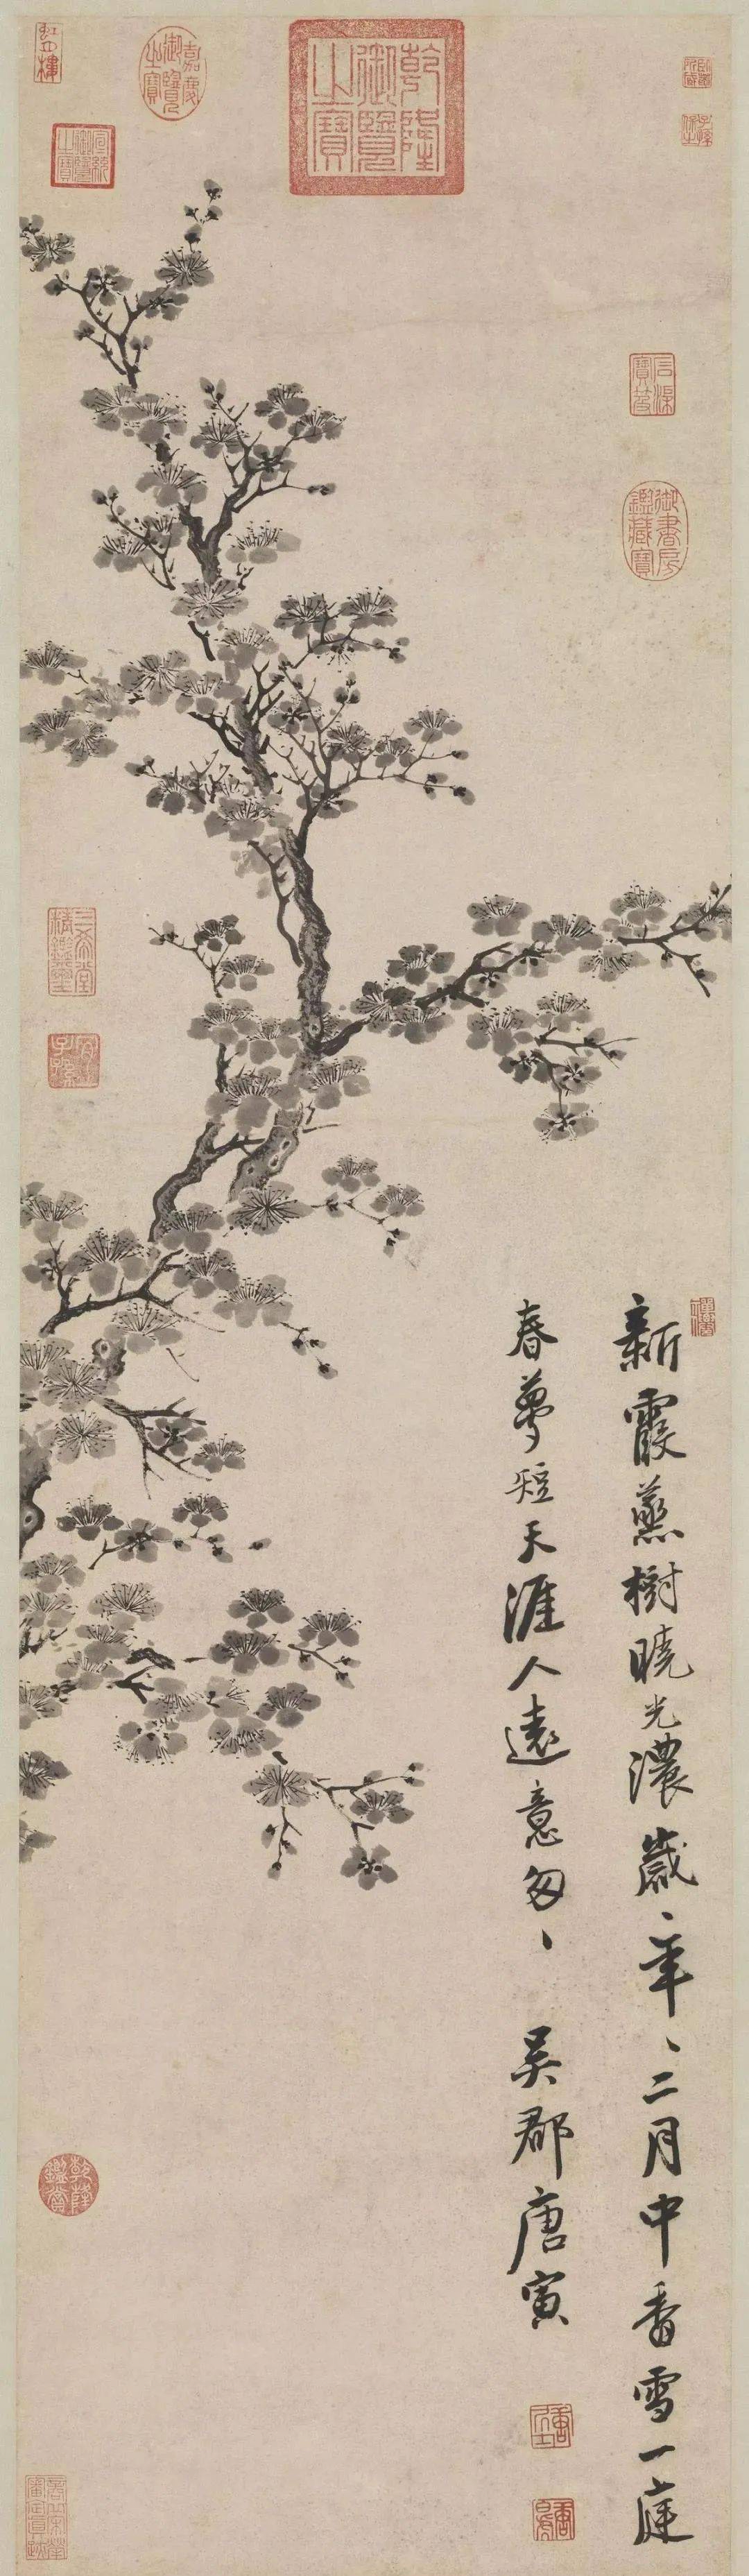 新霞蒸樹曉光濃歲、年、二月中香雪一庭
春夢短天涯人遠意匆、　吳郡唐寅
乾隆御覽之寶
嘉慶御覽之寶
宣統御覽之寶
御書房鑑藏寶
三希堂精鑑璽
宜子孫
乾隆鑑賞